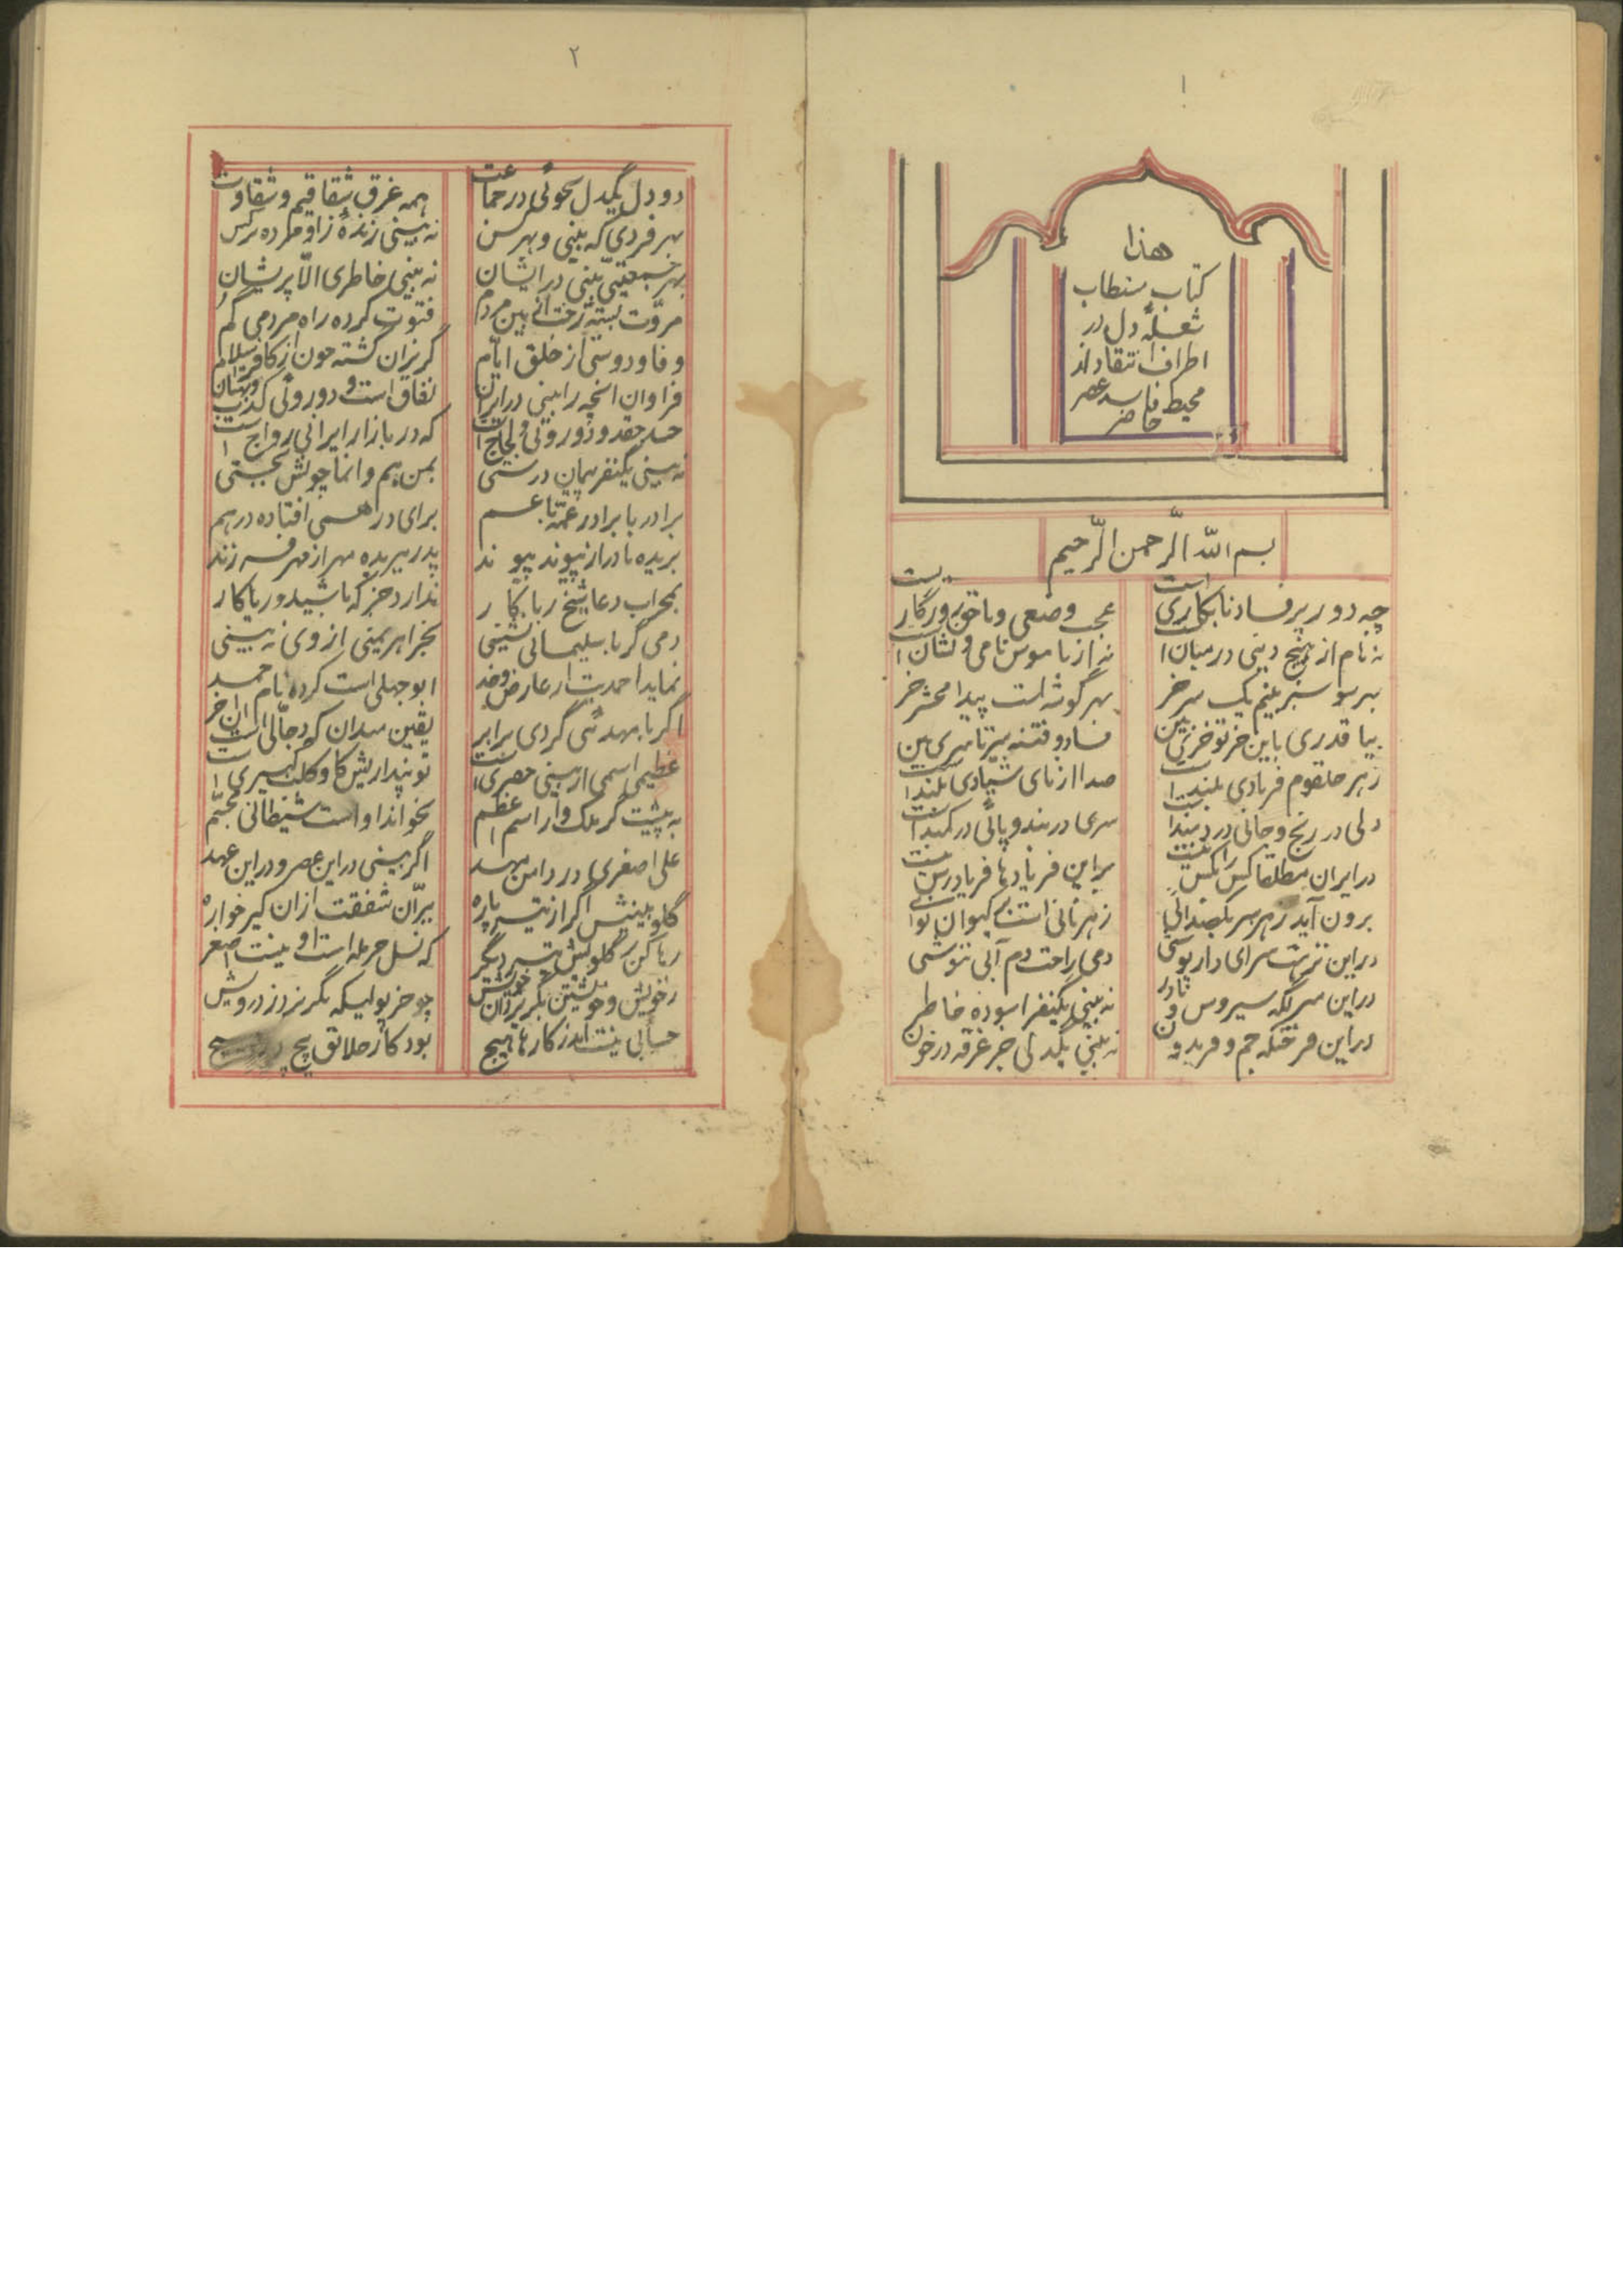 ۱
هذا
کتاب مستطاب
شعلهٔ دل در
اطراف انتقاد از
محیط فاسد عصر
حاضر
بسم الله الرّحمن الرّحیم
چه دور پرفساد نابکاری است عجب وضعی و ناخوش روزگاریست
نه نام از هیچ دینی در میان است نه از ناموس نامی و نشان است
بهر سو سر بینم یک سر خر بهر گوشه است پیدا محشر خر
بیا قدری باین خر تو خری بین فساد و فتنه سر تا سری بین
زهر حلقوم فریادی بلند است صدا از نای شیادی بلند است
دلی در رنج و جانی در دبند است سری در بند و پائی در کمند است
در ایران مطلقا کس را کس نیست براین فریادها فریادرس نیست
برون آید زهر سر یک صدائی زهر نائی است بر کیوان نوائی
در این نزهت سرای داریوشی دمی راحت دم آبی ننوشی
در این سر یکه سیروس و نادر نه بینی یکنفر اسوده خاطر
در این فرختکه جم و فریدون نه بینی یکدلی جز غرقه در خون
۲
دو دل یکدل نجوئی در جماعت همه غرق شقاقیم و شقاوت
بهر فردی که بینی و بهر کس نه بینی زندهٔ زاو مرده تر کس
بهر جمعیتی بینی در ایشان نه بینی خاطری الّا پریشان
مروّت بسته رخت از بین مردم فتوت کرده راه مردمی گم
وفا و دوستی از خلق ایّام گریزان گشته چون از کافر اسلام
فراوان انچه را بینی در ایران نفاق است و دوروئی کذب و بهتان
حسد حقد و دوروئی و لجاج است که در بازار ایرانی رواج است
نه بینی یکنفر پیمان درستی بمن هم وانما چونش بجستی
برادر با برادر عمّ با عم برای درهمی افتاده درهم
بریده مادر از پیوند پیوند پدر ببریده مهر از مهر فرزند
بمحراب دعا شیخ ریاکار ندارد جز که با شید و ریا کار
دمی گر با سلیمانی نشینی بجز اهریمنی از وی نه بینی
نماید احمدیت ار عارض و خد ابوجهلی است کرده نام احمد
اگر با مهدئی گردی برابر یقین میدان که دجّالی است ان خر
عظیمی اسمی ار بینی حصیری است تو پندار یش کاو کلب کبیری است
به پشت گر ملک وار اسم اعظم نخواند او است شیطانی مجسّم
علی اصغری در دامن مهد اگر بینی در این عصر و در این عهد
گلو بینیش اگر از تیر پاره ببرّان شفقت از ان شیر خواره
رها کن بر گلویش تیر دیگر که نسل حرمله است او نیست اصغر
ز خویش و خویشتن بگریز زان خویش چو خر پولیکه بگریزد ز درویش
حسابی نیست اندر کارها هیچ بود کار خلائق پیچ در پیچ